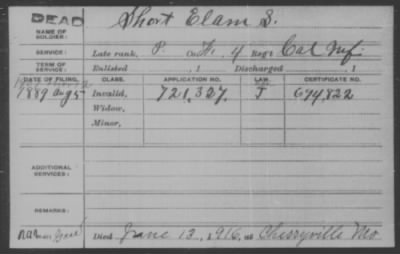 DEAD
NAME OF SOLDIER: Short Elam S.
SERVICE: Late rank, P. Co. H, 4 Reg't Cal Inf.
TERM OF SERVICE: Enlisted , 1 Discharged , 1
DATE OF FILING. CLASS. APPLICATION NO. LAW. CERTIFICATE NO.
1889 Aug 5 Invalid, 721,327. J 674,822
Widow,
Minor,
ADDITIONAL SERVICES:
REMARKS:
Died June 13, 1916, at Cherryville Mo.